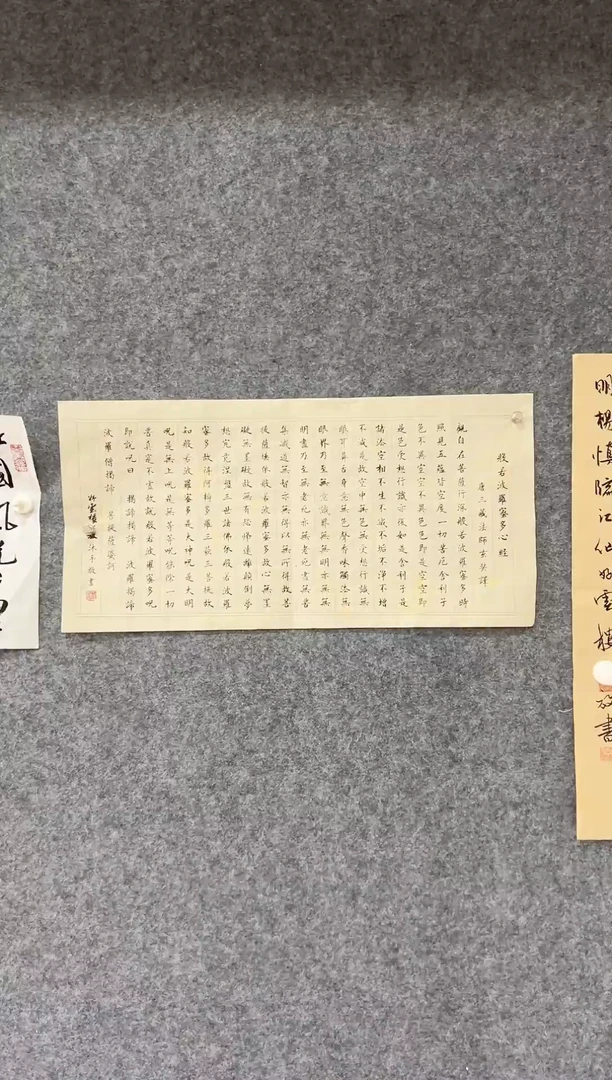 般若波羅蜜多心經
唐三藏法師玄奘譯
觀自在菩薩行深般若波羅蜜多時
照見五蘊皆空度一切苦厄舍利子
色不異空空不異色色即是空空即
是色受想行識亦復如是舍利子是
諸法空相不生不滅不垢不淨不增
不減是故空中無色無受想行識無
眼耳鼻舌身意無色聲香味觸法無
眼界乃至無意識界無無明亦無無
明盡乃至無老死亦無老死盡無苦
集滅道無智亦無得以無所得故菩
提薩埵依般若波羅蜜多故心無罣
礙無罣礙故無有恐怖遠離顛倒夢
想究竟涅盤三世諸佛依般若波羅
蜜多故得阿耨多羅三藐三菩提故
知般若波羅蜜多是大神呪是大明
呪是無上呪是無等等呪能除一切
苦真實不虛故說般若波羅蜜多呪
即說呪曰 揭諦揭諦 波羅揭諦
波羅僧揭諦 菩提薩婆訶
沐手敬書
國風
明楊慎臨江仙
書